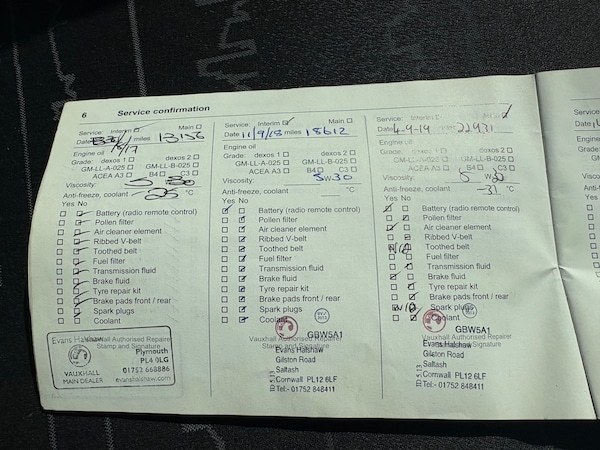 6 Service confirmation
Service: Interim Main
Date miles 13156
/8/17
Engine oil
Grade: dexos 1 dexos 2
GM-LL-A-025 GM-LL-B-025
ACEA A3 B4 C3
Viscosity: 5 30
Anti-freeze, coolant -25 °C
Yes No
Battery (radio remote control)
Pollen filter
Air cleaner element
Ribbed V-belt
Toothed belt
Fuel filter
Transmission fluid
Brake fluid
Tyre repair kit
Brake pads front / rear
Spark plugs
Coolant
Vauxhall Authorised Repairer
Stamp and Signature
Evans Halshaw
Plymouth
PL4 0LG
01752 668886
VAUXHALL
MAIN DEALER
evanshalshaw.com
Service: Interim Main
Date 11/9/18 miles 18612
Engine oil
Grade: dexos 1 dexos 2
GM-LL-A-025 GM-LL-B-025
ACEA A3 B4 C3
Viscosity: 5W30
Anti-freeze, coolant °C
Yes No
Battery (radio remote control)
Pollen filter
Air cleaner element
Ribbed V-belt
Toothed belt
Fuel filter
Transmission fluid
Brake fluid
Tyre repair kit
Brake pads front / rear
Spark plugs
Coolant
GBW5A1
Vauxhall Authorised Repairer
Stamp and Signature
Evans Halshaw
Gilston Road
Saltash
Cornwall PL12 6LF
Tel:- 01752 848411
Service: Interim
Date 4-9-19 22931
Engine oil
Grade: dexos 1 dexos 2
GM-LL-A-025 GM-LL-B-025
ACEA A3 B4 C3
Viscosity: 5 W30
Anti-freeze, coolant -31 °C
Yes No
Battery (radio remote control)
Pollen filter
Air cleaner element
Ribbed V-belt
N/A Toothed belt
Fuel filter
Transmission fluid
Brake fluid
Tyre repair kit
Brake pads front / rear
Spark plugs
Coolant
GBW5A1
Vauxhall Authorised Repairer
Stamp and Signature
Evans Halshaw
Gilston Road
Saltash
Cornwall PL12 6LF
Tel:- 01752 848411